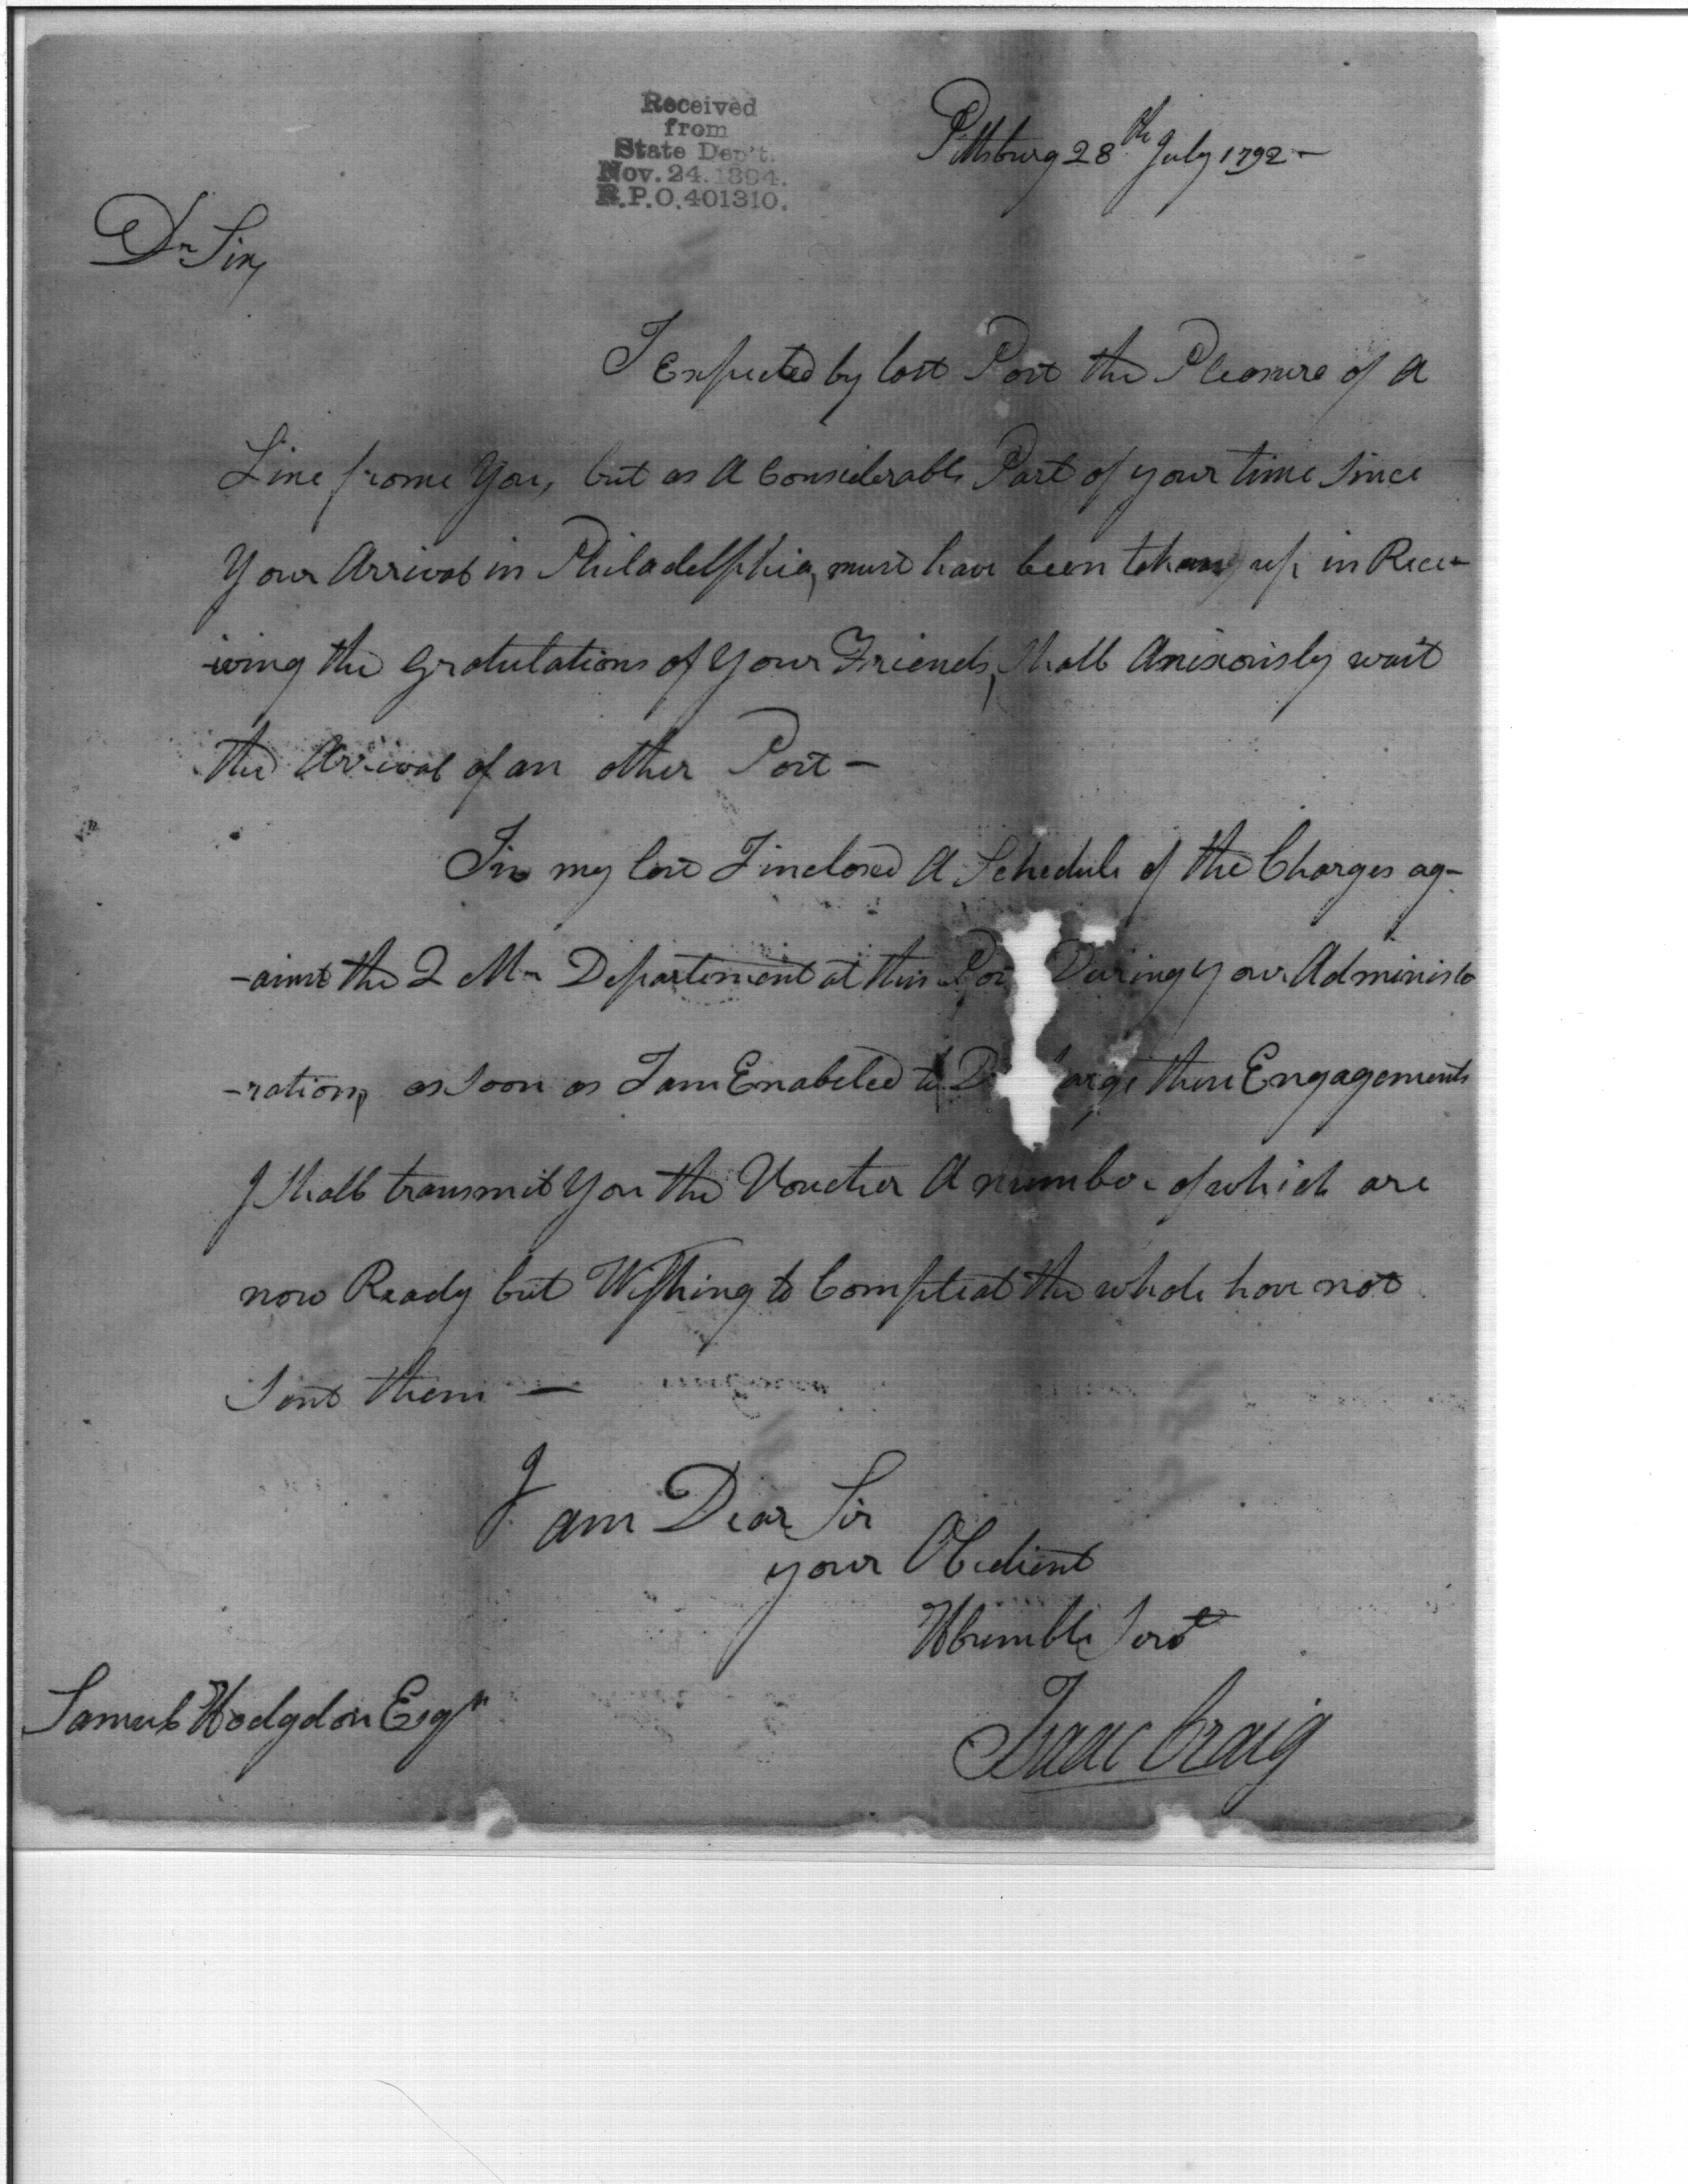 Received
from
State Dep't.
Nov. 24. 1894.
R.P.O. 401310.
Pittsburg 28th July 1792 —
Dr Sir,
I Expected by last Post the Pleasure of A
Line frome You, but as A Considerable Part of your time Since
Your Arrival in Philadelphia, must have been taken up in Rece-
-iving the Gratulations of Your Friends, Shall Anixously wait
the Arrival of an other Post —
In my last I inclosed A Schedule of the Charges ag-
-ainst the Q Mr Department at this Pos During your Administ
-ration, as Soon as I am Enabeled to D arge these Engagements
I Shall transmit You the Voucher A number of which are
now Ready but Wishing to Compleat the whole have not
Sent them —
I am Dear Sir
your Obedient
Humble Servt
Isaac Craig
Samuel Hodgdon Esqr